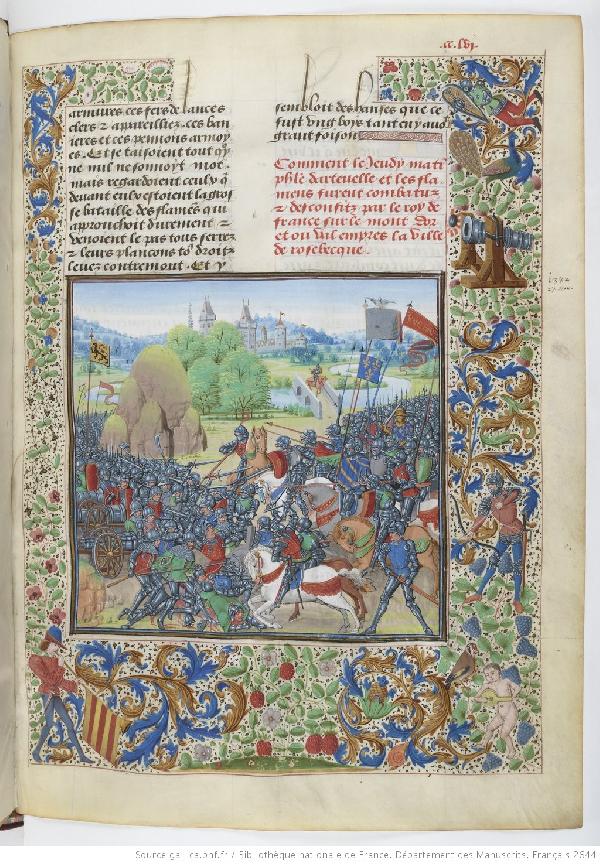 cc.lvi
armures ces fers de lances
clers & apareilliez. ces ban
ieres et ces penons armoy
es. Et se taisoient tout quy
ne nul ne sonnoit mot
mais regardoient ceulx qui
deuant eulx estoient la gros
se bataille des flamens qui
aprouchoit durement &
venoient le pas tous serrez
& leurs plancons tous droit
leuez contremont. Et y
sembloit des hanses que ce
fust vng boys tant en y auoit
grant foison
Comment le Jeudy mati
phle darteuelle et les fla
mens furent combatuz
& desconfiz par le roy de
france sur le mont dor
et ou val empres la ville
de rosebecque.
1382
27 Nov.
Source gallica.bnf.fr / Bibliothèque nationale de France, Département des Manuscrits, Français 2644